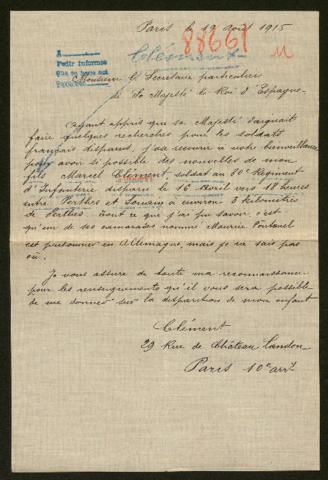 Paris le 19 Août 1915
88661
M
A
Petit informe
Clément
Monsieur le Secrétaire particulier
de Sa Majesté le Roi d'Espagne
Ayant appris que sa Majesté daignait
faire quelques recherches pour les soldats
français disparus, j'ai recours à votre bienveillance
pour avoir si possible des nouvelles de mon
fils Marcel Clément, soldat au 80e Régiment
d'Infanterie disparu le 16 Avril vers 18 heures
entre Perthes et Souain à environ 3 kilomètres
de Perthes. Tout ce que j'ai pu savoir c'est
qu'un de ses camarades nommé Maurice
est prisonnier en Allemagne, mais je ne sais pas
où.
Je vous assure de toute ma reconnaissance
pour les renseignements qu'il vous sera possible
de me donner sur la disparition de mon enfant
Clément
29 Rue de Château Landon
Paris 10e arrt